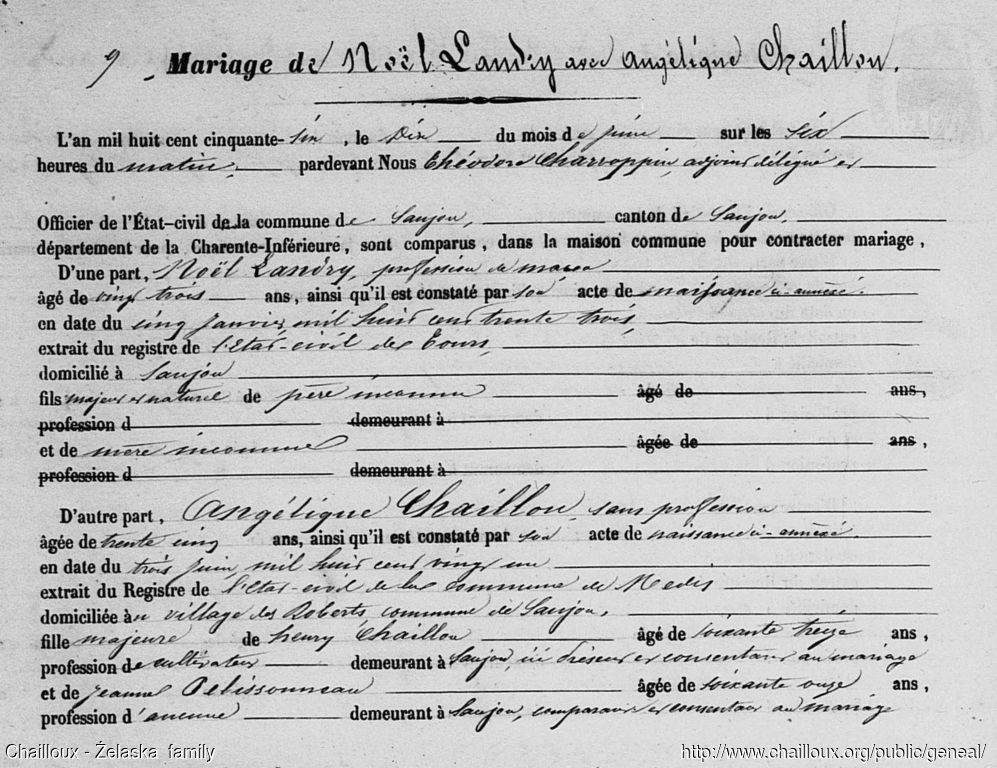 9 Mariage de Noël Landry avec Angélique Chaillou.
L'an mil huit cent cinquante-six, le Dix du mois de juin sur les six
heures du matin, pardevant Nous Théodore Charroppin, adjoint délégué et
Officier de l'État-civil de la commune de Saujon, canton de Saujon,
département de la Charente-Inférieure, sont comparus, dans la maison commune pour contracter mariage,
D'une part, Noël Landry, profession de maçon
âgé de vingt trois ans, ainsi qu'il est constaté par son acte de naissance ci-annexé.
en date du cinq Janvier mil huit cent trente trois,
extrait du registre de l'état-civil de Tours,
domicilié à Saujon
fils majeur et naturel de père inconnu âgé de ans,
profession d demeurant à
et de mère inconnue âgée de ans,
profession d demeurant à
D'autre part, Angélique Chaillou, sans profession
âgée de trente cinq ans, ainsi qu'il est constaté par son acte de naissance ci-annexé.
en date du trois juin, mil huit cent vingt un
extrait du Registre de l'état-civil de la commune de Medis
domiciliée au village des Roberts, commune de Saujon,
fille majeure de henry Chaillou âgé de soixante treize ans,
profession de cultivateur demeurant à Saujon, ici présent et consentant au mariage
et de Jeanne Pelissonneau âgée de soixante onze ans,
profession d'aucune demeurant à Saujon, comparant et consentant au mariage
Chailloux - Żelaska family http://www.chailloux.org/public/geneal/